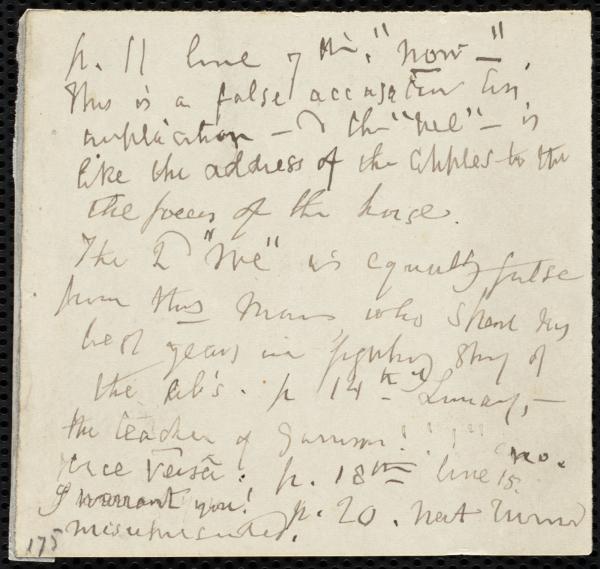 p. 11 line 7th, "now –"
This is a false accusation by
implication – & the "we" – is
like the address of the apples to the
the foeces of the horse.
The 2d "We" is equally false
from this man, who spent his
best years in fighting shy of
the ab's. p 14th Lundy, –
the teacher of Garrison!
vice versa. p. 18th line 15. no.
I warrant you! p. 20. Nat Turner
misunderstood.
175